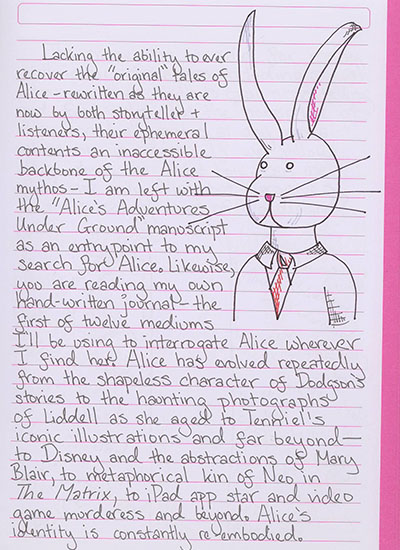 Lacking the ability to ever
recover the "original" tales of
Alice – rewritten as they are
now by both storyteller +
listeners, their ephemeral
contents an inaccessible
backbone of the Alice
mythos – I am left with
the "Alice's Adventures
Under Ground" manuscript
as an entrypoint to my
search for Alice. Likewise,
you are reading my own
hand-written journal – the
first of twelve mediums
I'll be using to interrogate Alice wherever
I find her. Alice has evolved repeatedly
from the shapeless character of Dodgson's
stories to the haunting photographs
of Liddell as she aged to Tenniel's
iconic illustrations and far beyond—
to Disney and the abstractions of Mary
Blair, to metaphorical kin of Neo in
The Matrix, to iPad app star and video
game murderess and beyond. Alice's
identity is constantly re-embodied.